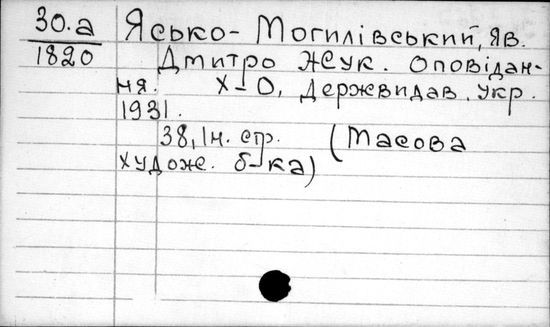 30.а
1820
Ясько-Могилівський, Яв.
Дмитро Жук. Оповідан-
ня. Х-О, Держвидав. Укр.
1931.
38, 1н. стр. (Масова
худож. б-ка)